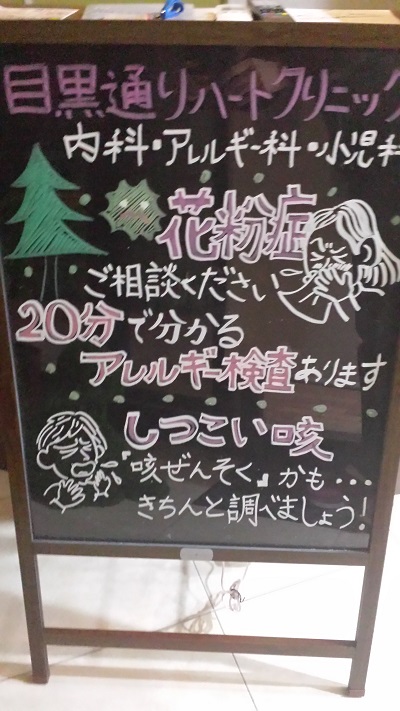 目黒通りハートクリニック
内科・アレルギー科・小児科
花粉症
ご相談ください
20分で分かる
アレルギー検査あります
しつこい咳
『咳ぜんそく』かも・・・
きちんと調べましょう!